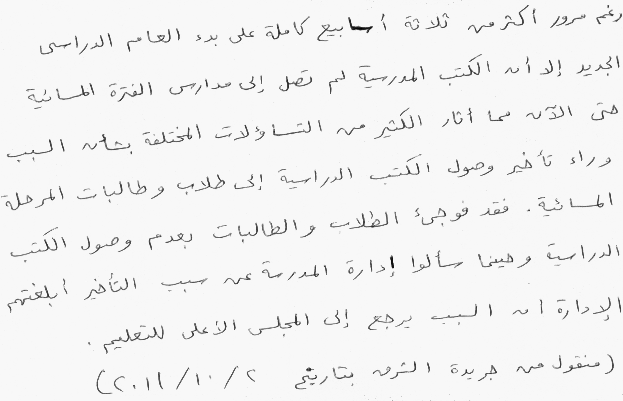 رغم مرور أكثر من ثلاثة أسابيع كاملة على بدء العام الدراسى
الجديد إلا أن الكتب المدرسية لم تصل إلى مدارس الفترة المسائية
حتى الآن مما أثار الكثير من التساؤلات المختلفة بشأن السبب
وراء تأخير وصول الكتب الدراسية إلى طلاب وطالبات المرحلة
المسائية . فقد فوجئ الطلاب والطالبات بعدم وصول الكتب
الدراسية وحينما سألوا إدارة المدرسة عن سبب التأخير أبلغتهم
الإدارة أن السبب يرجع إلى المجلس الأعلى للتعليم .
(منقول من جريدة الشرق بتاريخ ٢ / ١٠ / ٢٠١١)